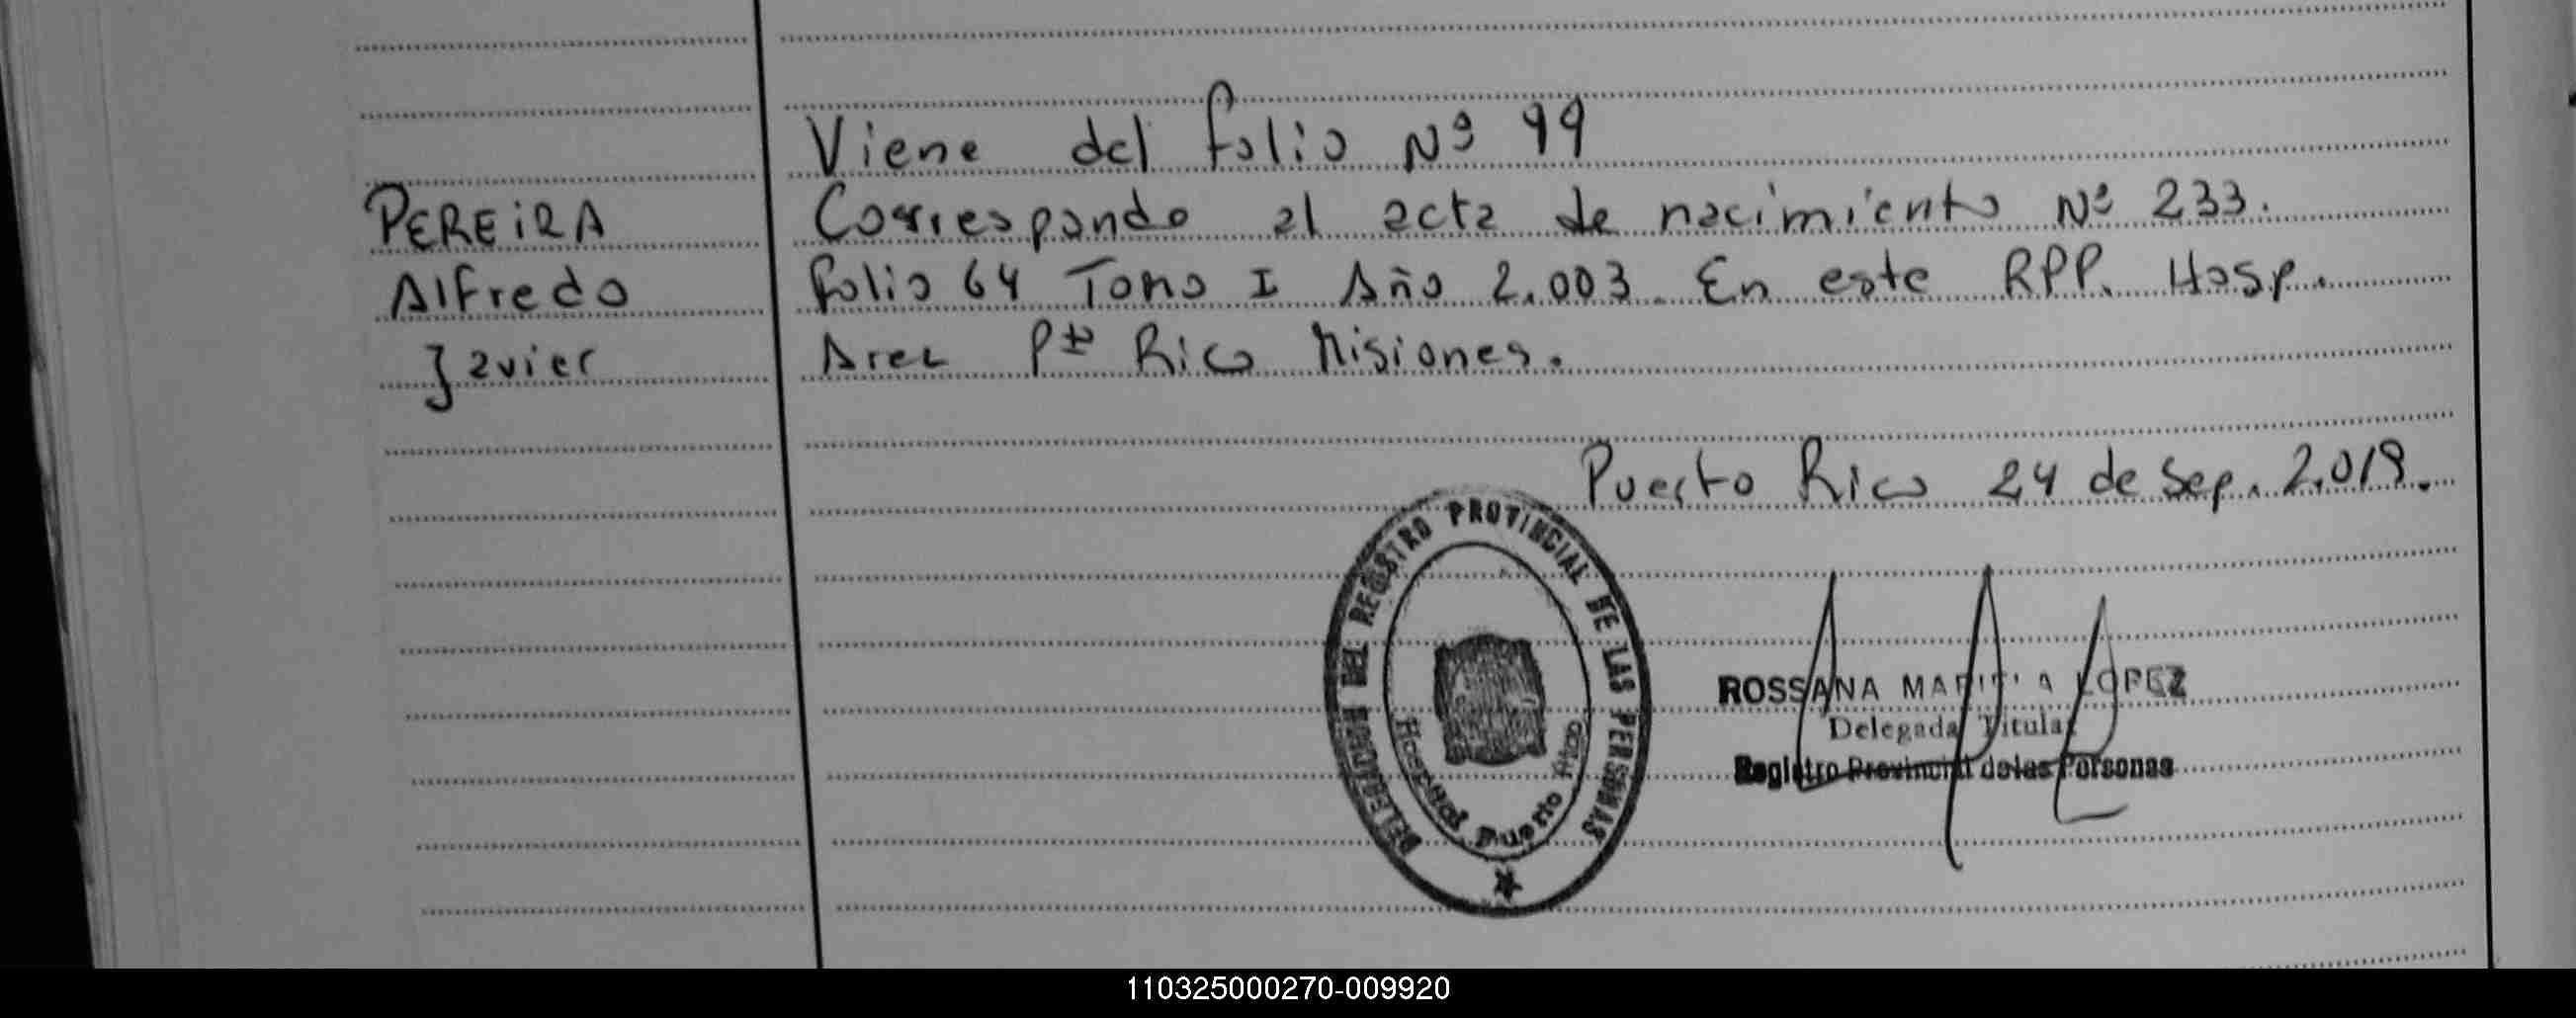 Viene del folio Nº 99
PEREIRA
Corresponde al acta de nacimiento Nº 233.
Alfredo
folio 64 Tomo I Año 2.003. En este RPP. Hosp.
Javier
Area Pto Rico Misiones.
Puerto Rico 24 de Sep. 2.019.
DELEGACION DEL REGISTRO PROVINCIAL DE LAS PERSONAS
Hospital Puerto Rico
ROSSANA LOPEZ
Delegada Titular
Registro Provincial de las Personas
110325000270-009920